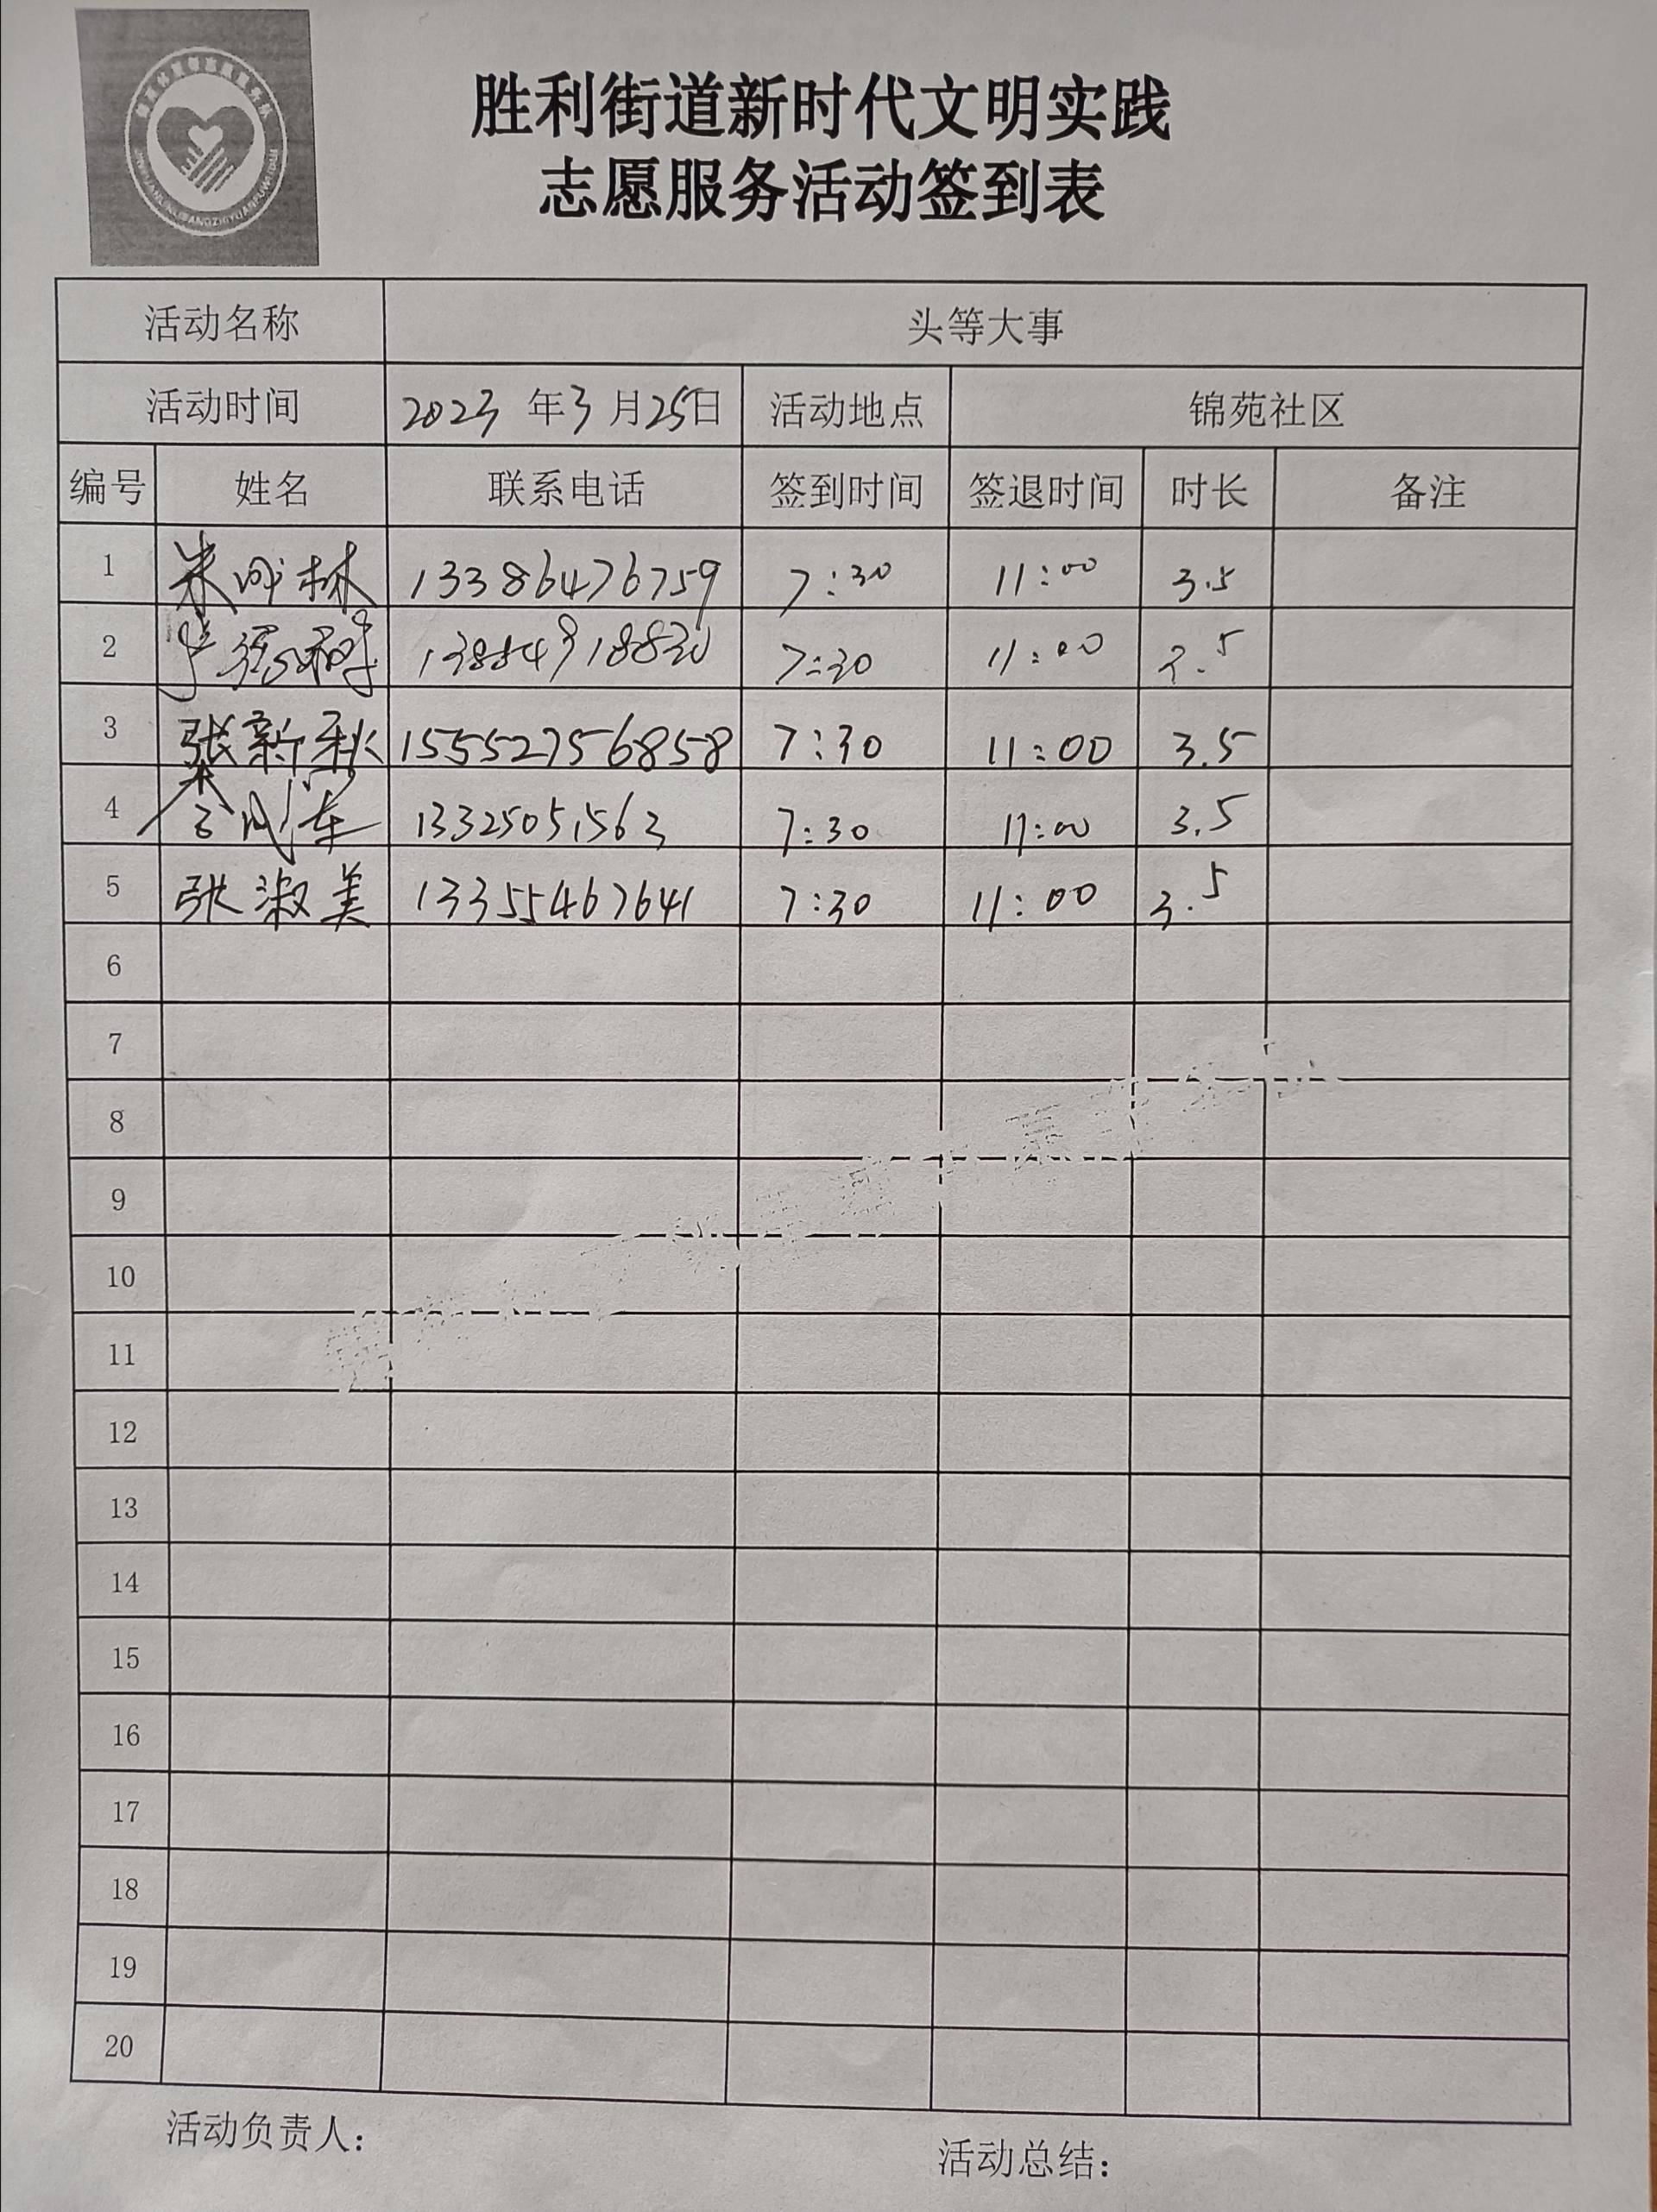 胜利街道新时代文明实践
志愿服务活动签到表
活动名称 头等大事
活动时间 2023 年 3 月 25 日 活动地点 锦苑社区
编号 姓名 联系电话 签到时间 签退时间 时长 备注
1 朱成林 13386476759 7:30 11:00 3.5
2 13884918830 7:30 11:00 3.5
3 张新秋 15552756858 7:30 11:00 3.5
4 13325051563 7:30 11:00 3.5
5 张淑美 13355467641 7:30 11:00 3.5
6
7
8
9
10
11
12
13
14
15
16
17
18
19
20
活动负责人：
活动总结：